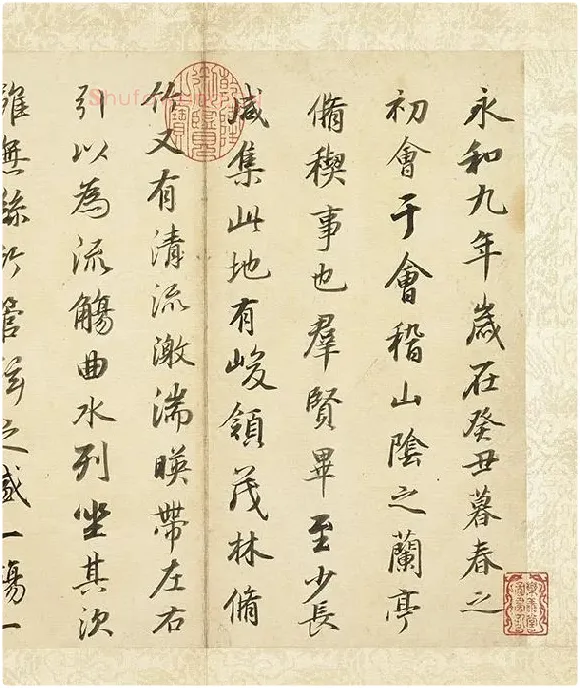 永和九年歲在癸丑暮春之
初會于會稽山陰之蘭亭
脩稧事也羣賢畢至少長
咸集此地有峻領茂林脩
竹又有清流激湍暎帶左右
引以為流觴曲水列坐其次
雖無絲竹管弦之盛一觴一
乾隆御覽之寶
樂善堂圖書記